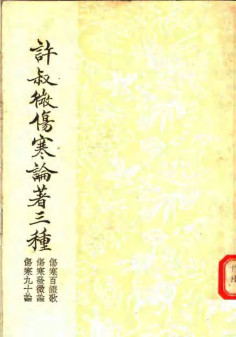 許叔微傷寒論著三種
傷寒百證歌
傷寒發微論
傷寒九十論